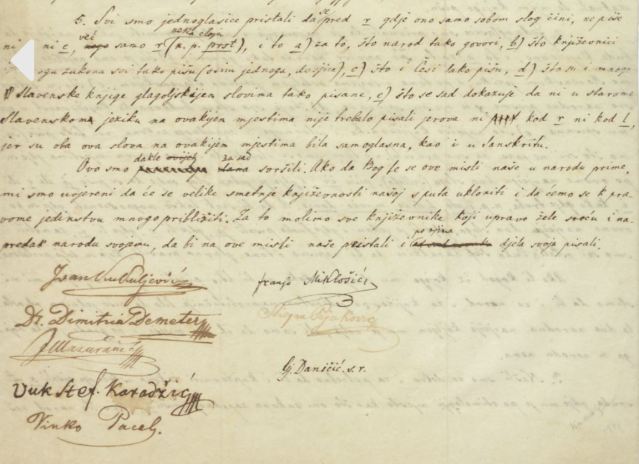 5. Svi smo jednoglasice pristali da se pred r gdje ono samo sobom slog čini, ne piše
ni ni e, već samo r (neka clyn n. p. prst), i to a) za to, što narod tako govori, b) što književnici
zakona svi tako pišu (osim jednoga, dvojice), c) što i Česi tako pišu, d) što su i mnoge
Slavenske knjige glagoljskijem slovima tako pisane, e) što se sad dokazuje da ni u starome
Slavenskom jeziku na ovakijem mjestima nije trebalo pisati jerova ni kod r ni kod l,
jer su oba ova slova na ovakijem mjestima bila samoglasna, kao i u Sanskritu.
Ovo smo dakle za sad svršili. Ako da Bog te se ove misli naše u narodu prime,
mi smo uvjereni da će se velike smetnje književnosti našoj s puta ukloniti i da ćemo se k pra-
vome jedinstvu mnogo približiti. Za to molimo sve književnike koji upravo žele sreću i na-
predak narodu svojemu, da bi na ove misli naše pristali i po njima djela svoja pisali.
Ivan Kukuljević
Franjo Miklošić
Dr. Dimitria Demeter
Stjepan Pejaković
I Mažuranić
Gj. Daničić. s. r.
Vuk Stef. Karadžić
Vinko Pacel.